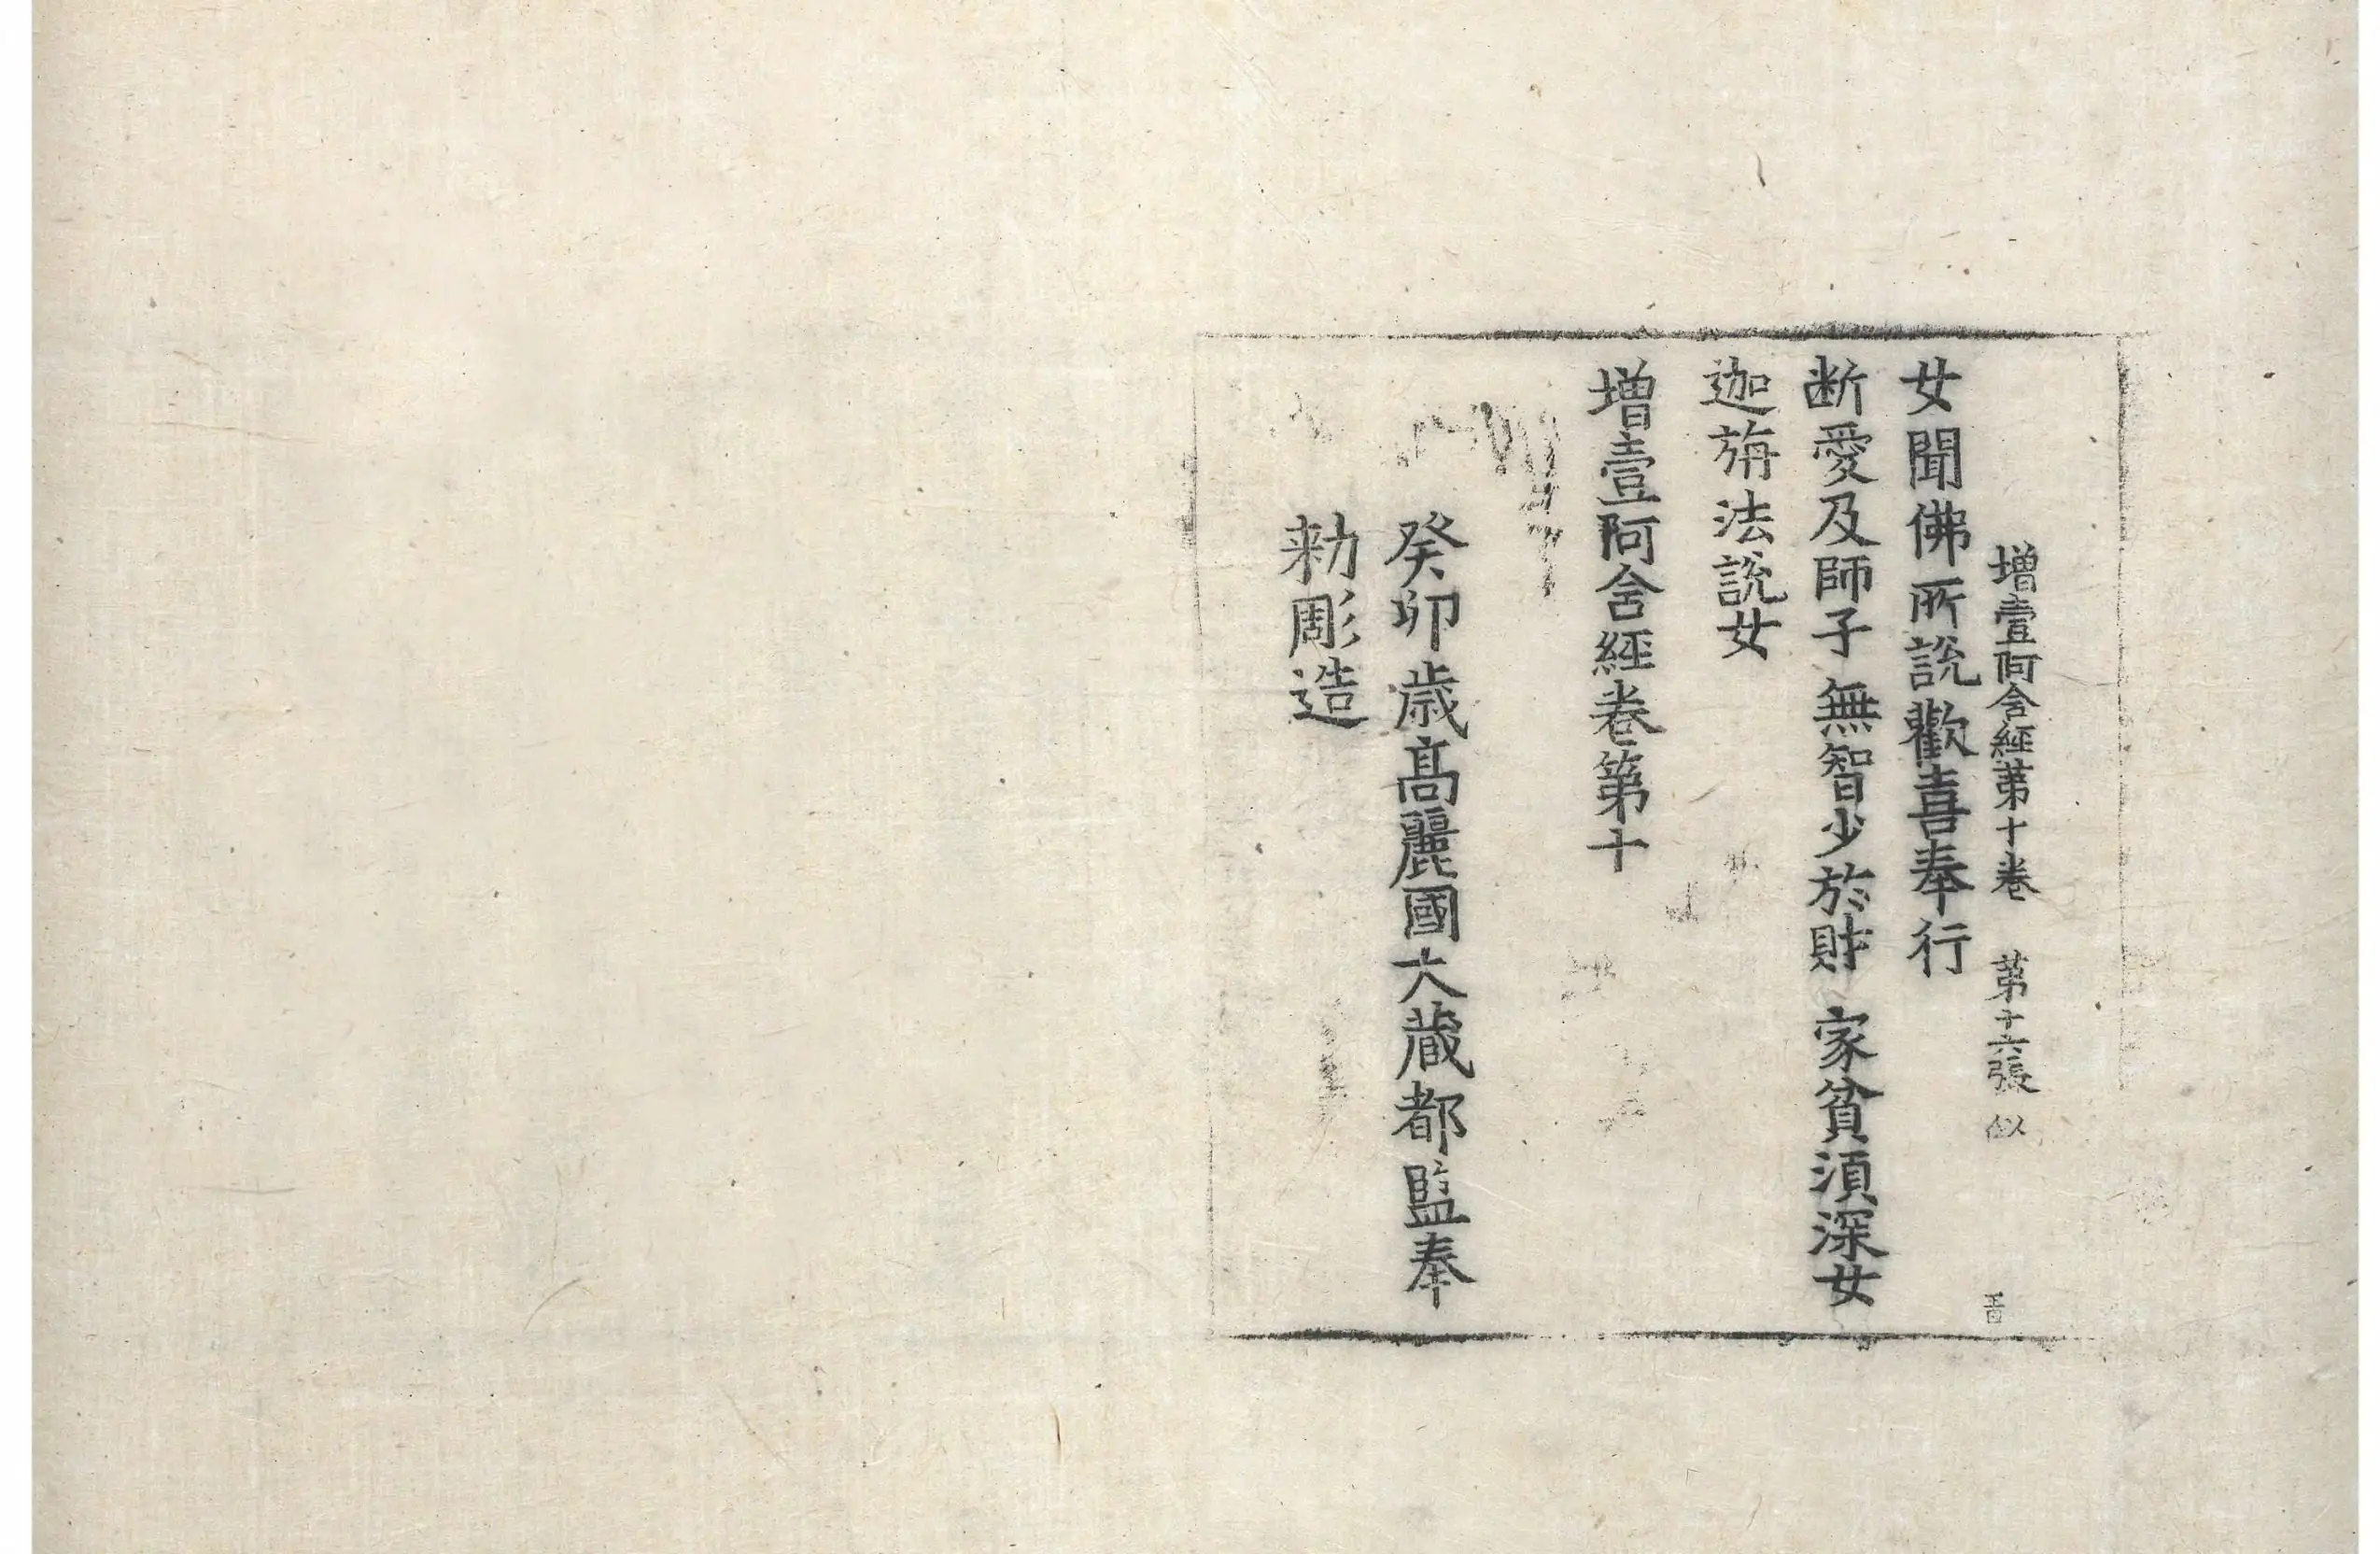 增壹阿含經第十卷　第十六張　似
女聞佛所說歡喜奉行
断愛及師子　無智少於財　家貧湏深女
迦旃法說女
增壹阿含經卷第十
癸卯歲高麗國大藏都監奉
勑彫造